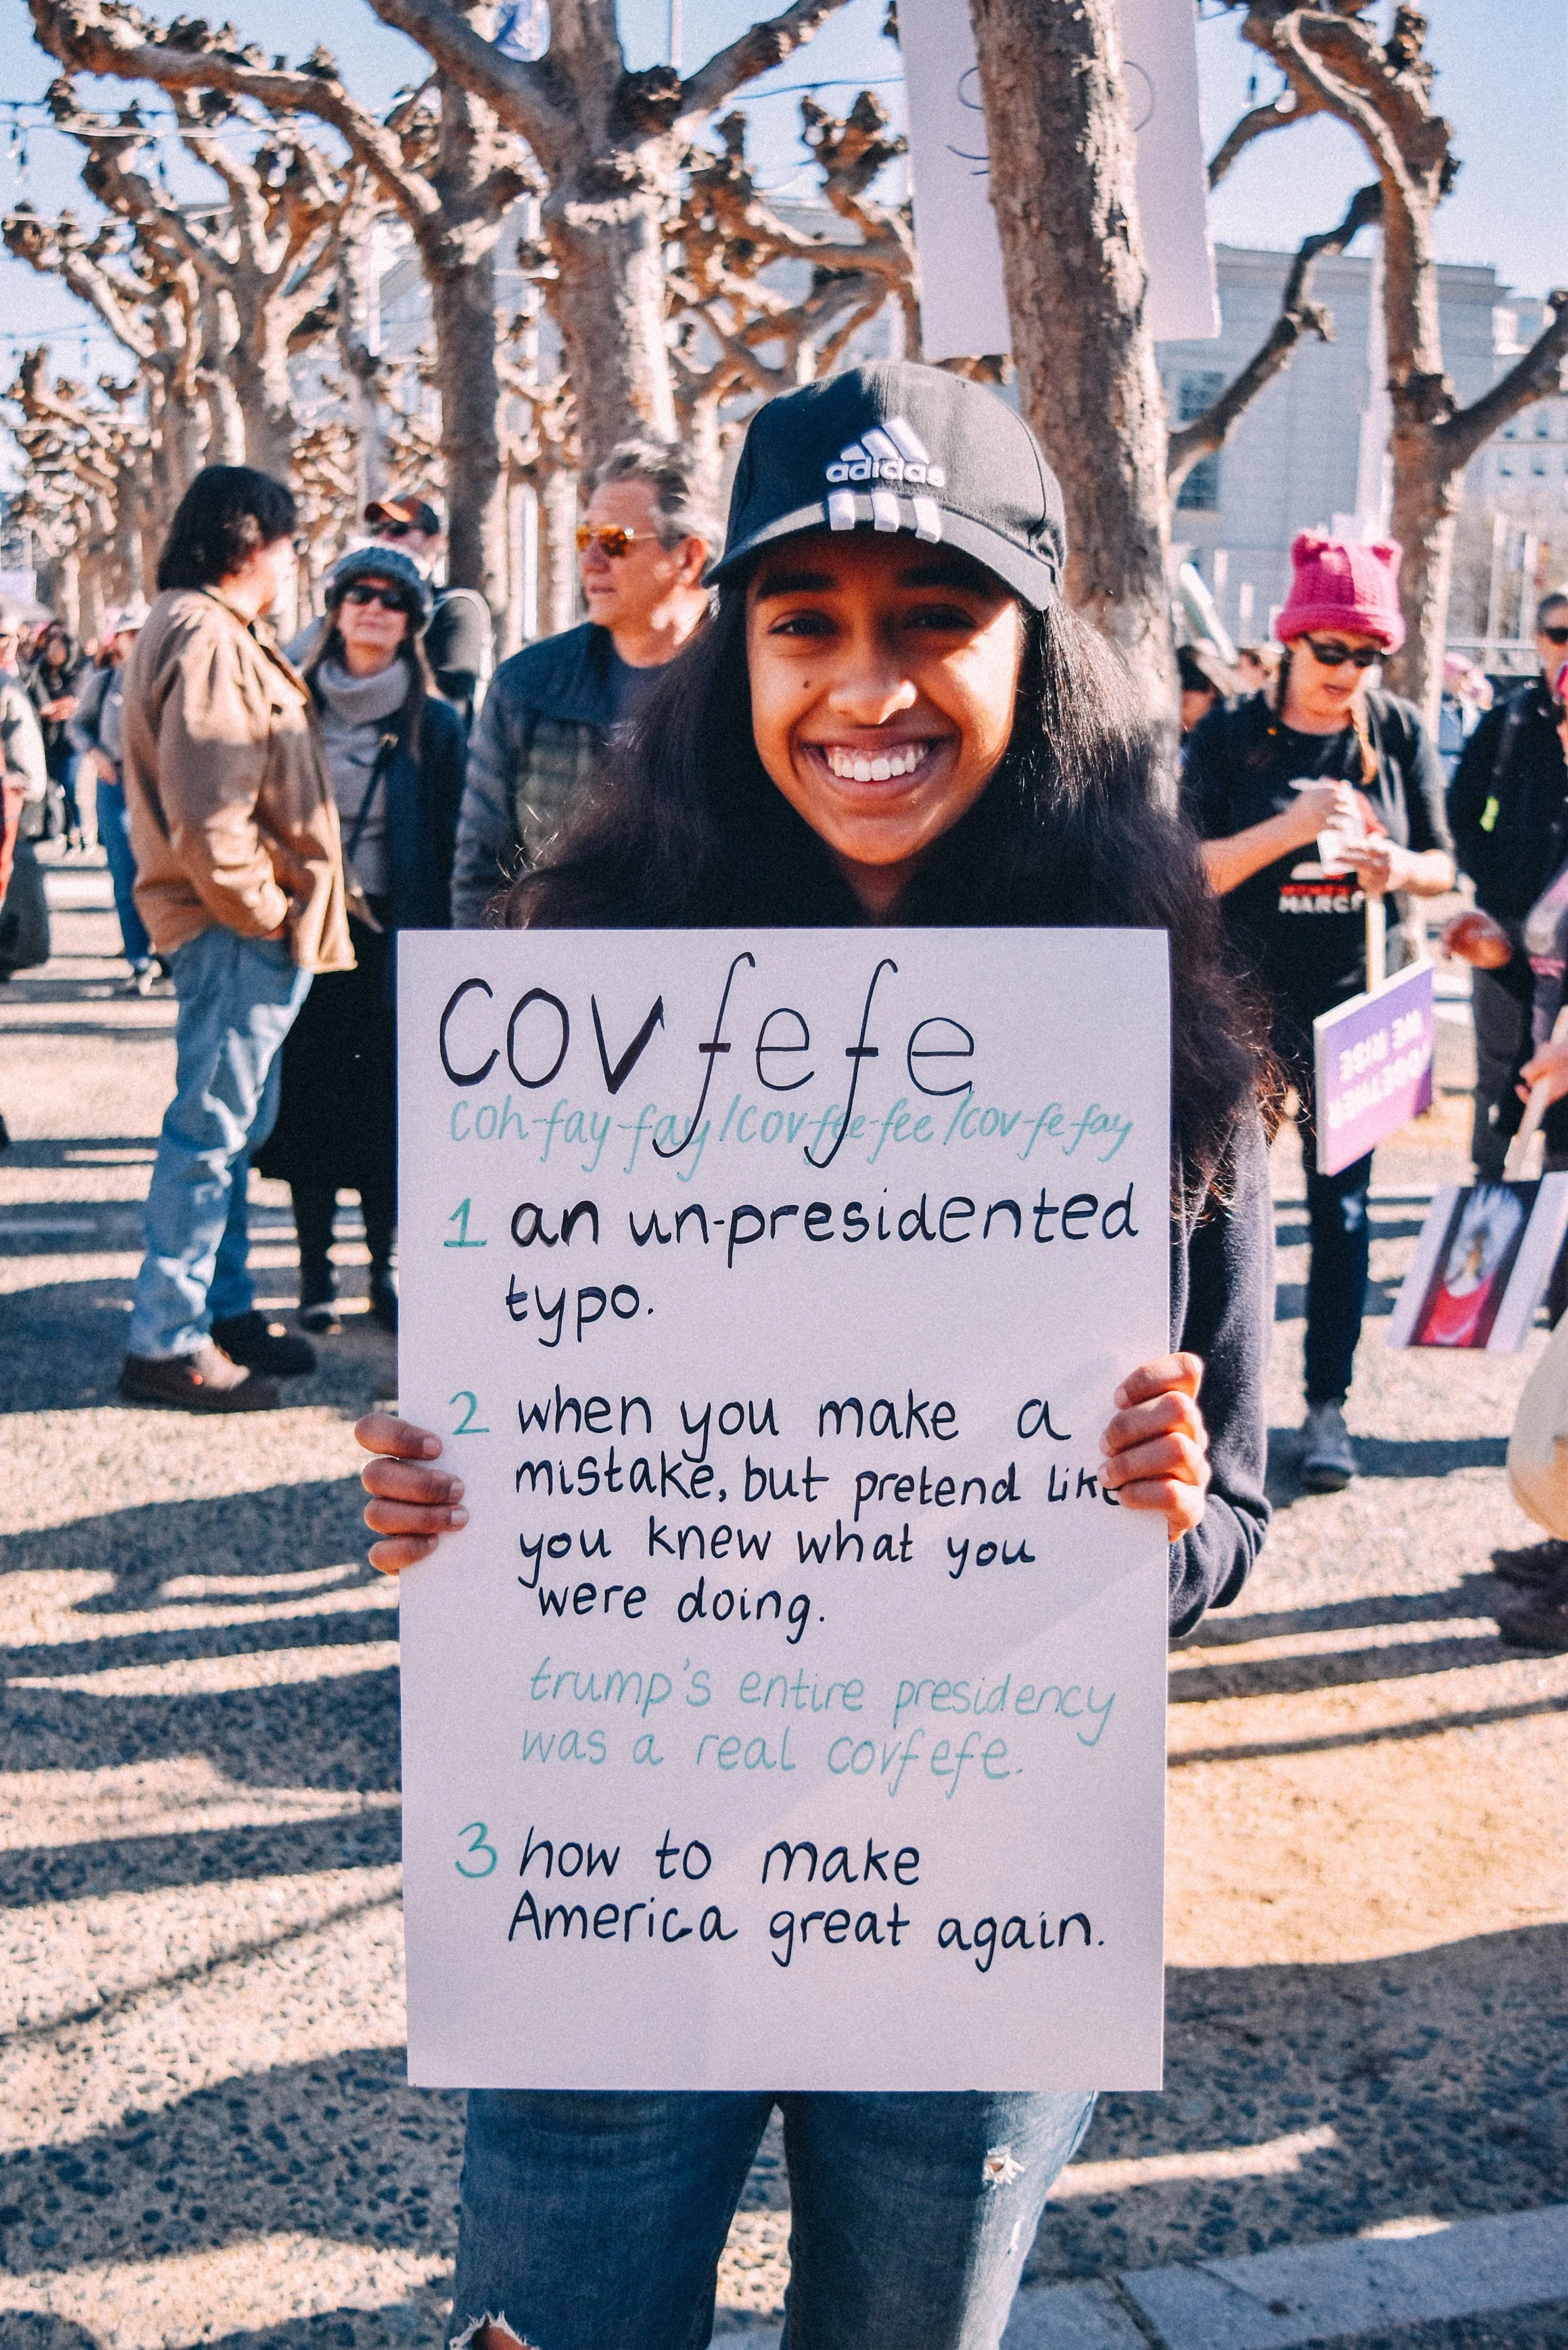 adidas
covfefe
coh-fay-fay/cov fee-fee/cov-fe fay
1 an un-presidented
typo.
2 when you make a
mistake, but pretend like
you knew what you
were doing.
trump's entire presidency
was a real covfefe.
3 how to make
America great again.
MARCH
WE RISE
TOGETHER